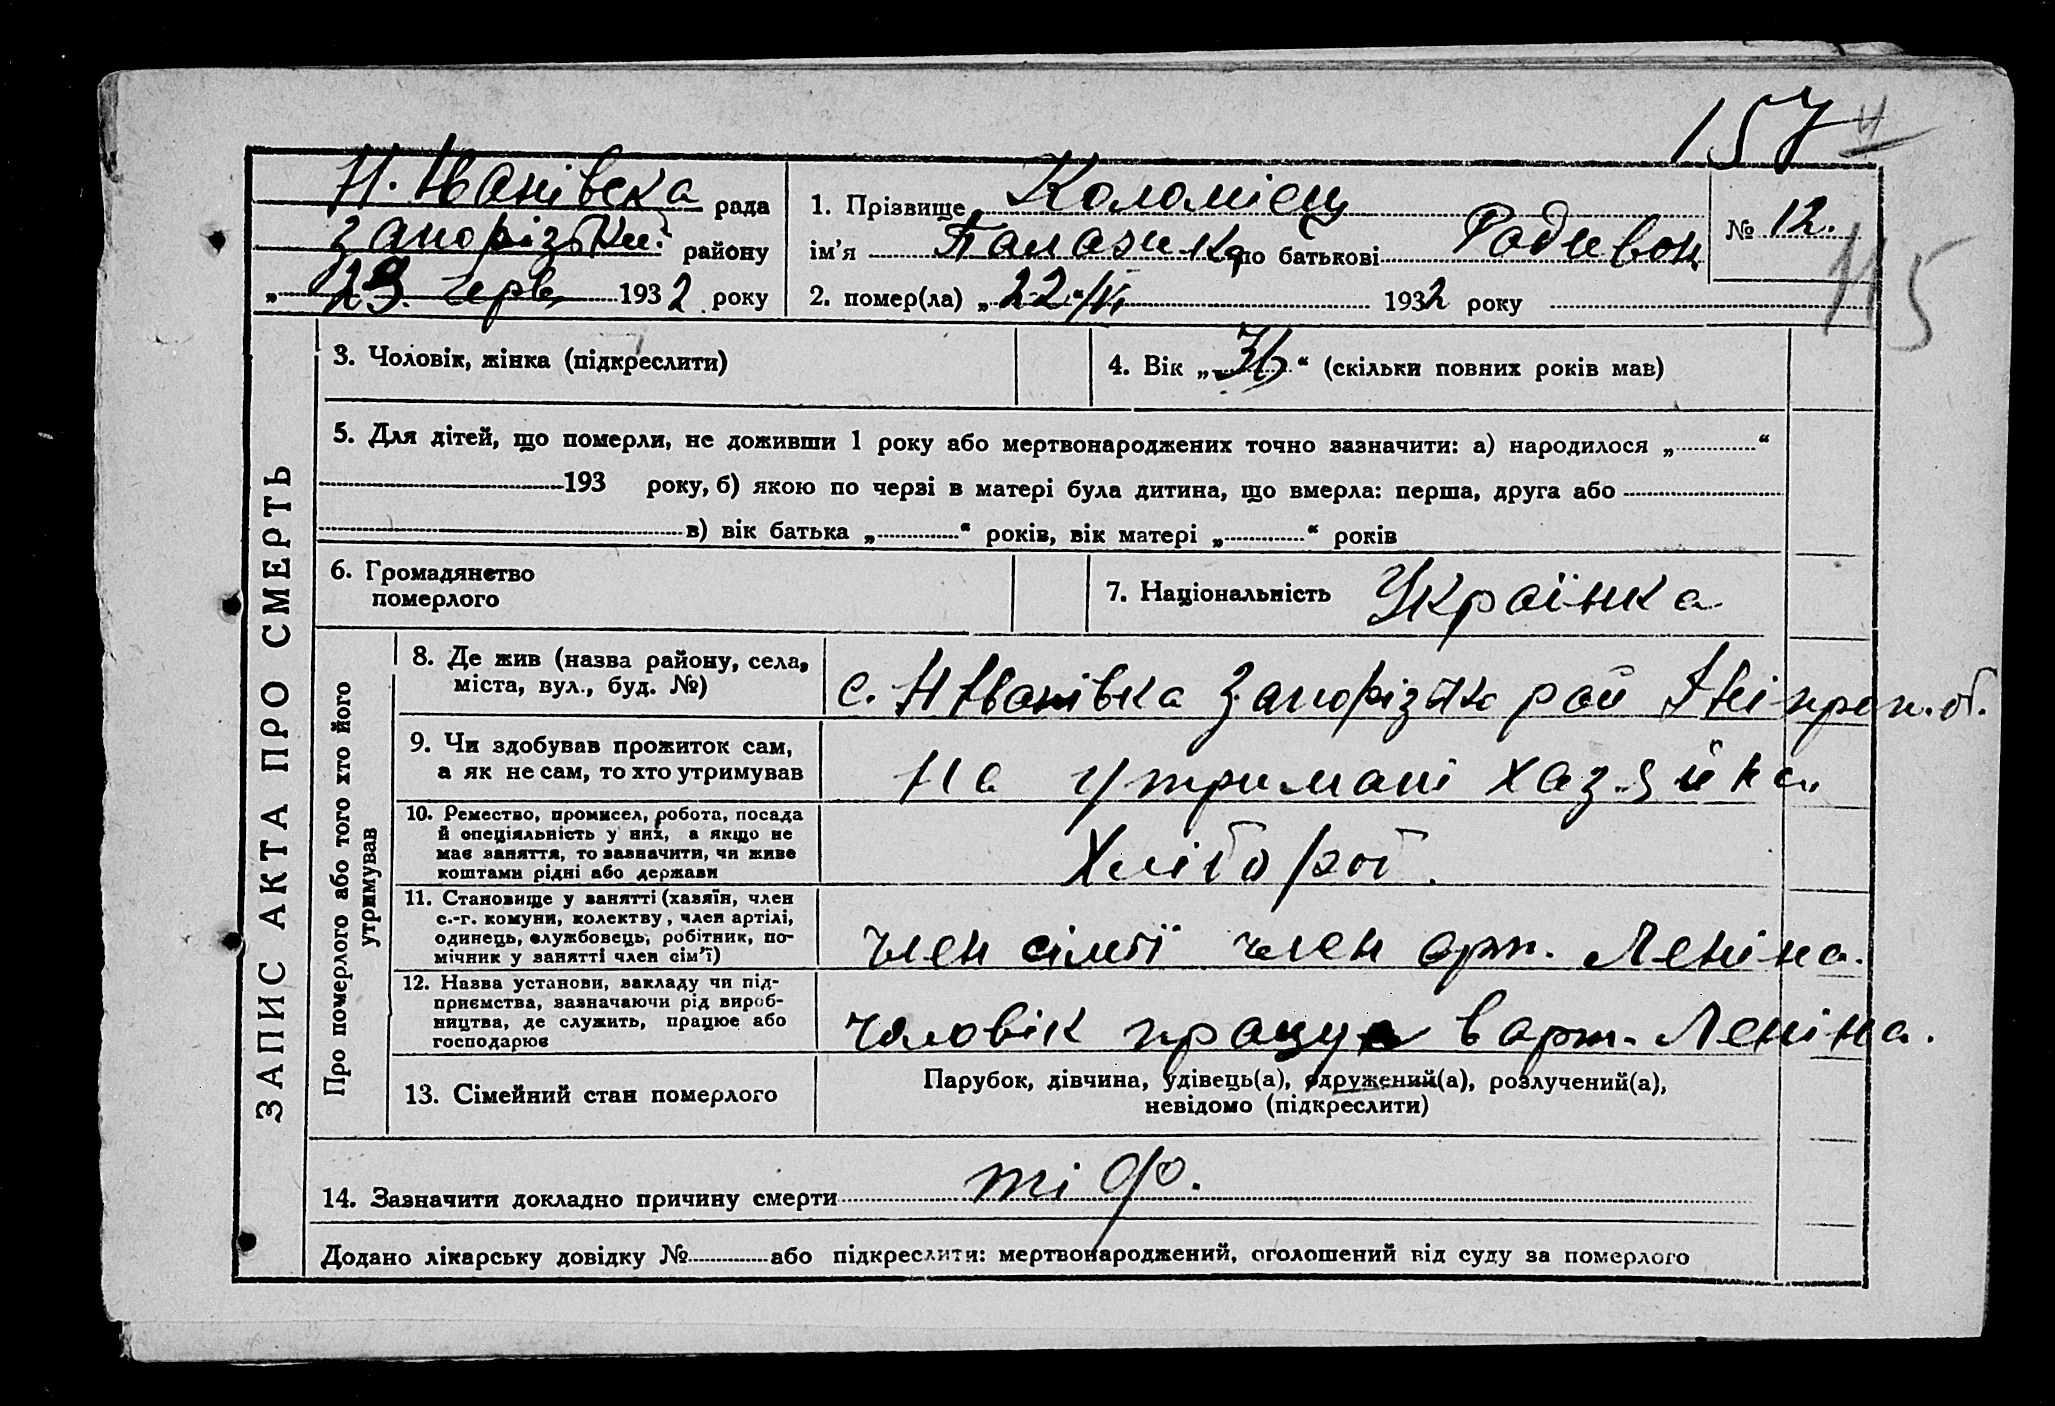 157
4
Н. Іванівска рада
Запорізьки. району
„ 29. черв. 1932 року
1. Прізвище Коломієц
ім’я по батькові Родивон
2. помер(ла) „22“ 1932 року
№ 12.
115
ЗАПИС АКТА ПРО СМЕРТЬ
3. Чоловік, жінка (підкреслити)
4. Вік „36“ (скільки повних років мав)
5. Для дітей, що померли, не доживши 1 року або мертвонароджених точно зазначити: а) народилося „ “
193 року, б) якою по черзі в матері була дитина, що вмерла: перша, друга або
в) вік батька „ “ років, вік матері „ “ років
6. Громадянство
померлого
7. Національність Українка
Про померлого або того хто його
утримував
8. Де жив (назва району, села,
міста, вул., буд. №)
с. Н Іванівка Запорізька рай Дніпроп. об.
9. Чи здобував прожиток сам,
а як не сам, то хто утримував
на утримані хазяйка
10. Ремество, промисел, робота, посада
й спеціяльність у них, а якщо не
має заняття, то зазначити, чи живе
коштами рідні або держави
Хлібороб.
11. Становище у занятті (хазяїн, член
с.-г. комуни, колектву, член артілі,
одинець, службовець, робітник, по-
мічник у занятті член сім’ї)
член сімї член арт. Леніна.
12. Назва установи, закладу чи під-
приємства, зазначаючи рід вироб-
ництва, де служить, працює або
господарює
чоловік працує в арт. Леніна.
13. Сімейний стан померлого
Парубок, дівчина, удівець(а), одружений(а), розлучений(а),
невідомо (підкреслити)
14. Зазначити докладно причину смерти тіф.
Додано лікарську довідку № або підкреслити: мертвонароджений, оголошений від суду за померлого